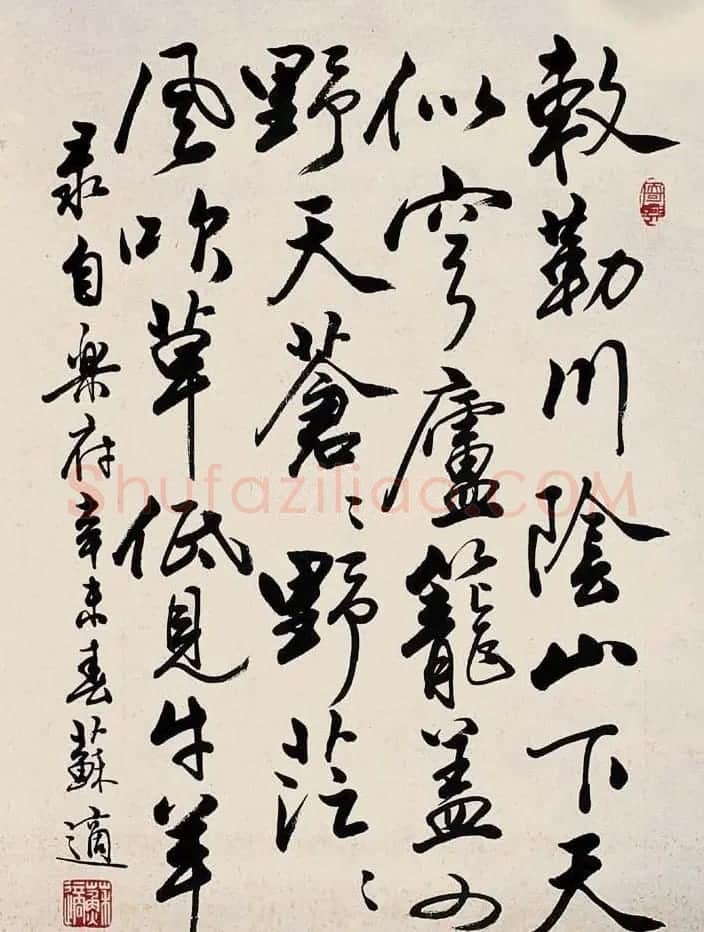 敕勒川陰山下天
似穹廬籠盖四
野天蒼〻野茫〻
風吹草低見牛羊
录自樂府辛未春蘇適
Shufaziliao.COM